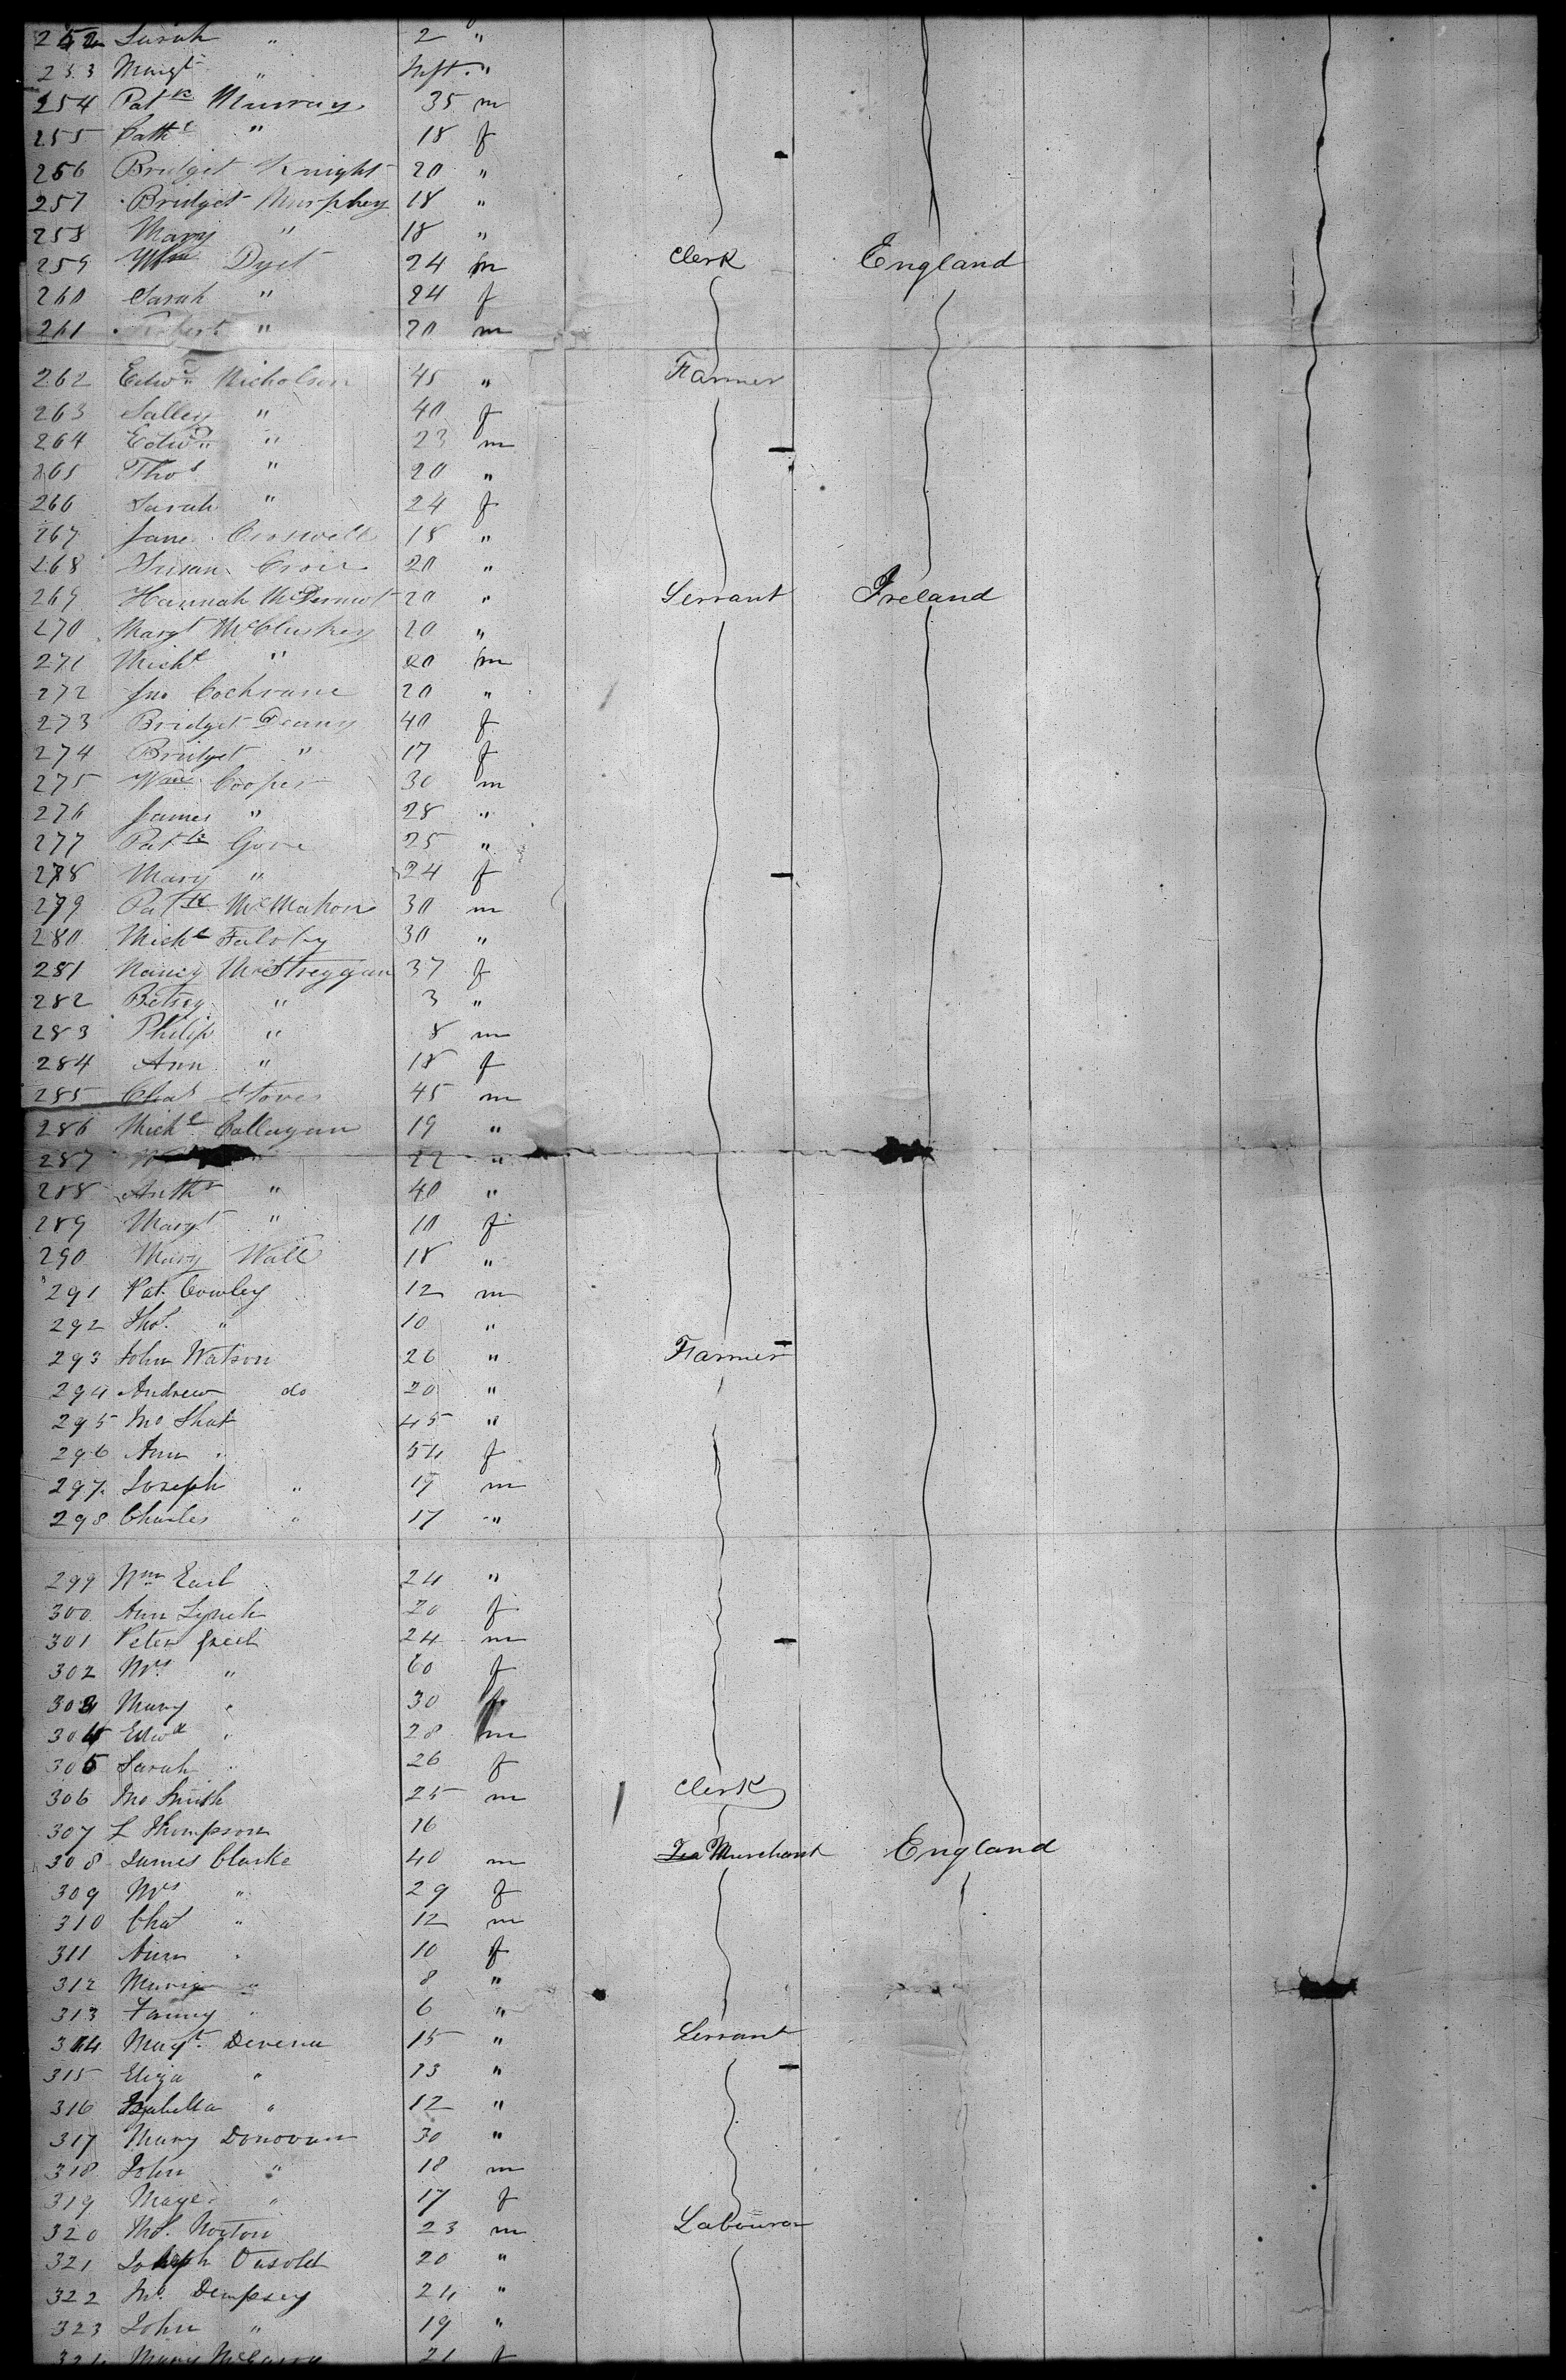 252 Sarah " 2 "
253 Margt " Inft. "
254 Patk Murray 35 m
255 Cathe " 18 f
256 Bridget Knight 20 "
257 Bridget Murphey 18 "
258 Mary " 18 "
259 Wm Dyet 24 m Clerk England
260 Sarah " 24 f
261 Robert " 20 m
262 Edwd Nicholson 45 " Farmer
263 Salley " 40 f
264 Edwd " 23 m
265 Thos " 20 "
266 Sarah " 24 f
267 Jane Croswell 18 "
268 Susan 20 "
269 Hannah McDermot 20 " Servant Ireland
270 Margt McCluskey 20 "
271 Michl " 20 m
272 Jno Cochrane 20 "
273 Bridget Deany 40 f
274 Bridget " 17 f
275 Wm Cooper 30 m
276 James " 28 "
277 Patk Gore 25 "
278 Mary " 24 f
279 Patk McMahon 30 m
280 Michl Faloby 30 "
281 Nancy McStreggan 37 f
282 Betsey " 3 "
283 Philip " 8 m
284 Ann " 18 f
285 Chas Stover 45 m
286 Michl Callagan 19 "
287 " 22 "
288 Anthy " 40 "
289 Margt " 10 f
290 Mary Wall 18 "
291 Pat. Cowley 12 m
292 Thos. " 10 "
293 John Watson 26 " Farmer
294 Andrew do 20 "
295 Jno Shat 45 "
296 Ann " 54 f
297 Joseph " 19 m
298 Charles " 17 "
299 Wm Earl 24 "
300 Ann Lynch 20 f
301 Peter 24 m
302 Mrs " 60 f
303 Mary " 30 f
304 Edwd " 28 m
305 Sarah " 26 f
306 Jno Smith 25 m Clerk
307 L Thompson 16
308 James Clarke 40 m Tea Merchant England
309 Mrs " 29 f
310 Chas " 12 m
311 Ann " 10 f
312 Maria " 8 "
313 Fanny " 6 "
314 Magt. Devena 15 " Servant
315 Eliza " 13 "
316 Isabella " 12 "
317 Mary Donovan 30 "
318 John " 18 m
319 " 17 f
320 Thos. Norton 23 m Labourer
321 Joseph 20 "
322 Jno. Dempsey 24 "
323 John " 19 "
324 Mary 21 f